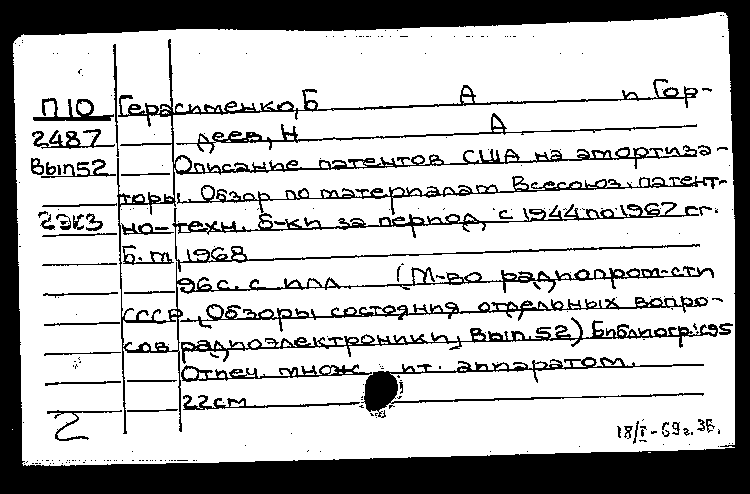 П10 Герасименко, Б А и Гор-
2487 деев, Н А
Вып 52 Описание патентов США на амортиза-
торы. Обзор по материалам Всесоюз. патент-
2экз но-техн. б-ки за период с 1944 по 1967 гг.
Б. м, 1968
96 с. с илл. (М-во радиопром-сти
СССР. Обзоры состояния отдельных вопро-
сов радиоэлектроники, Вып. 52) Библиогр: с95
Отпеч. множ. ит. аппаратом.
22см
2 18/I-69г. ЗБ.